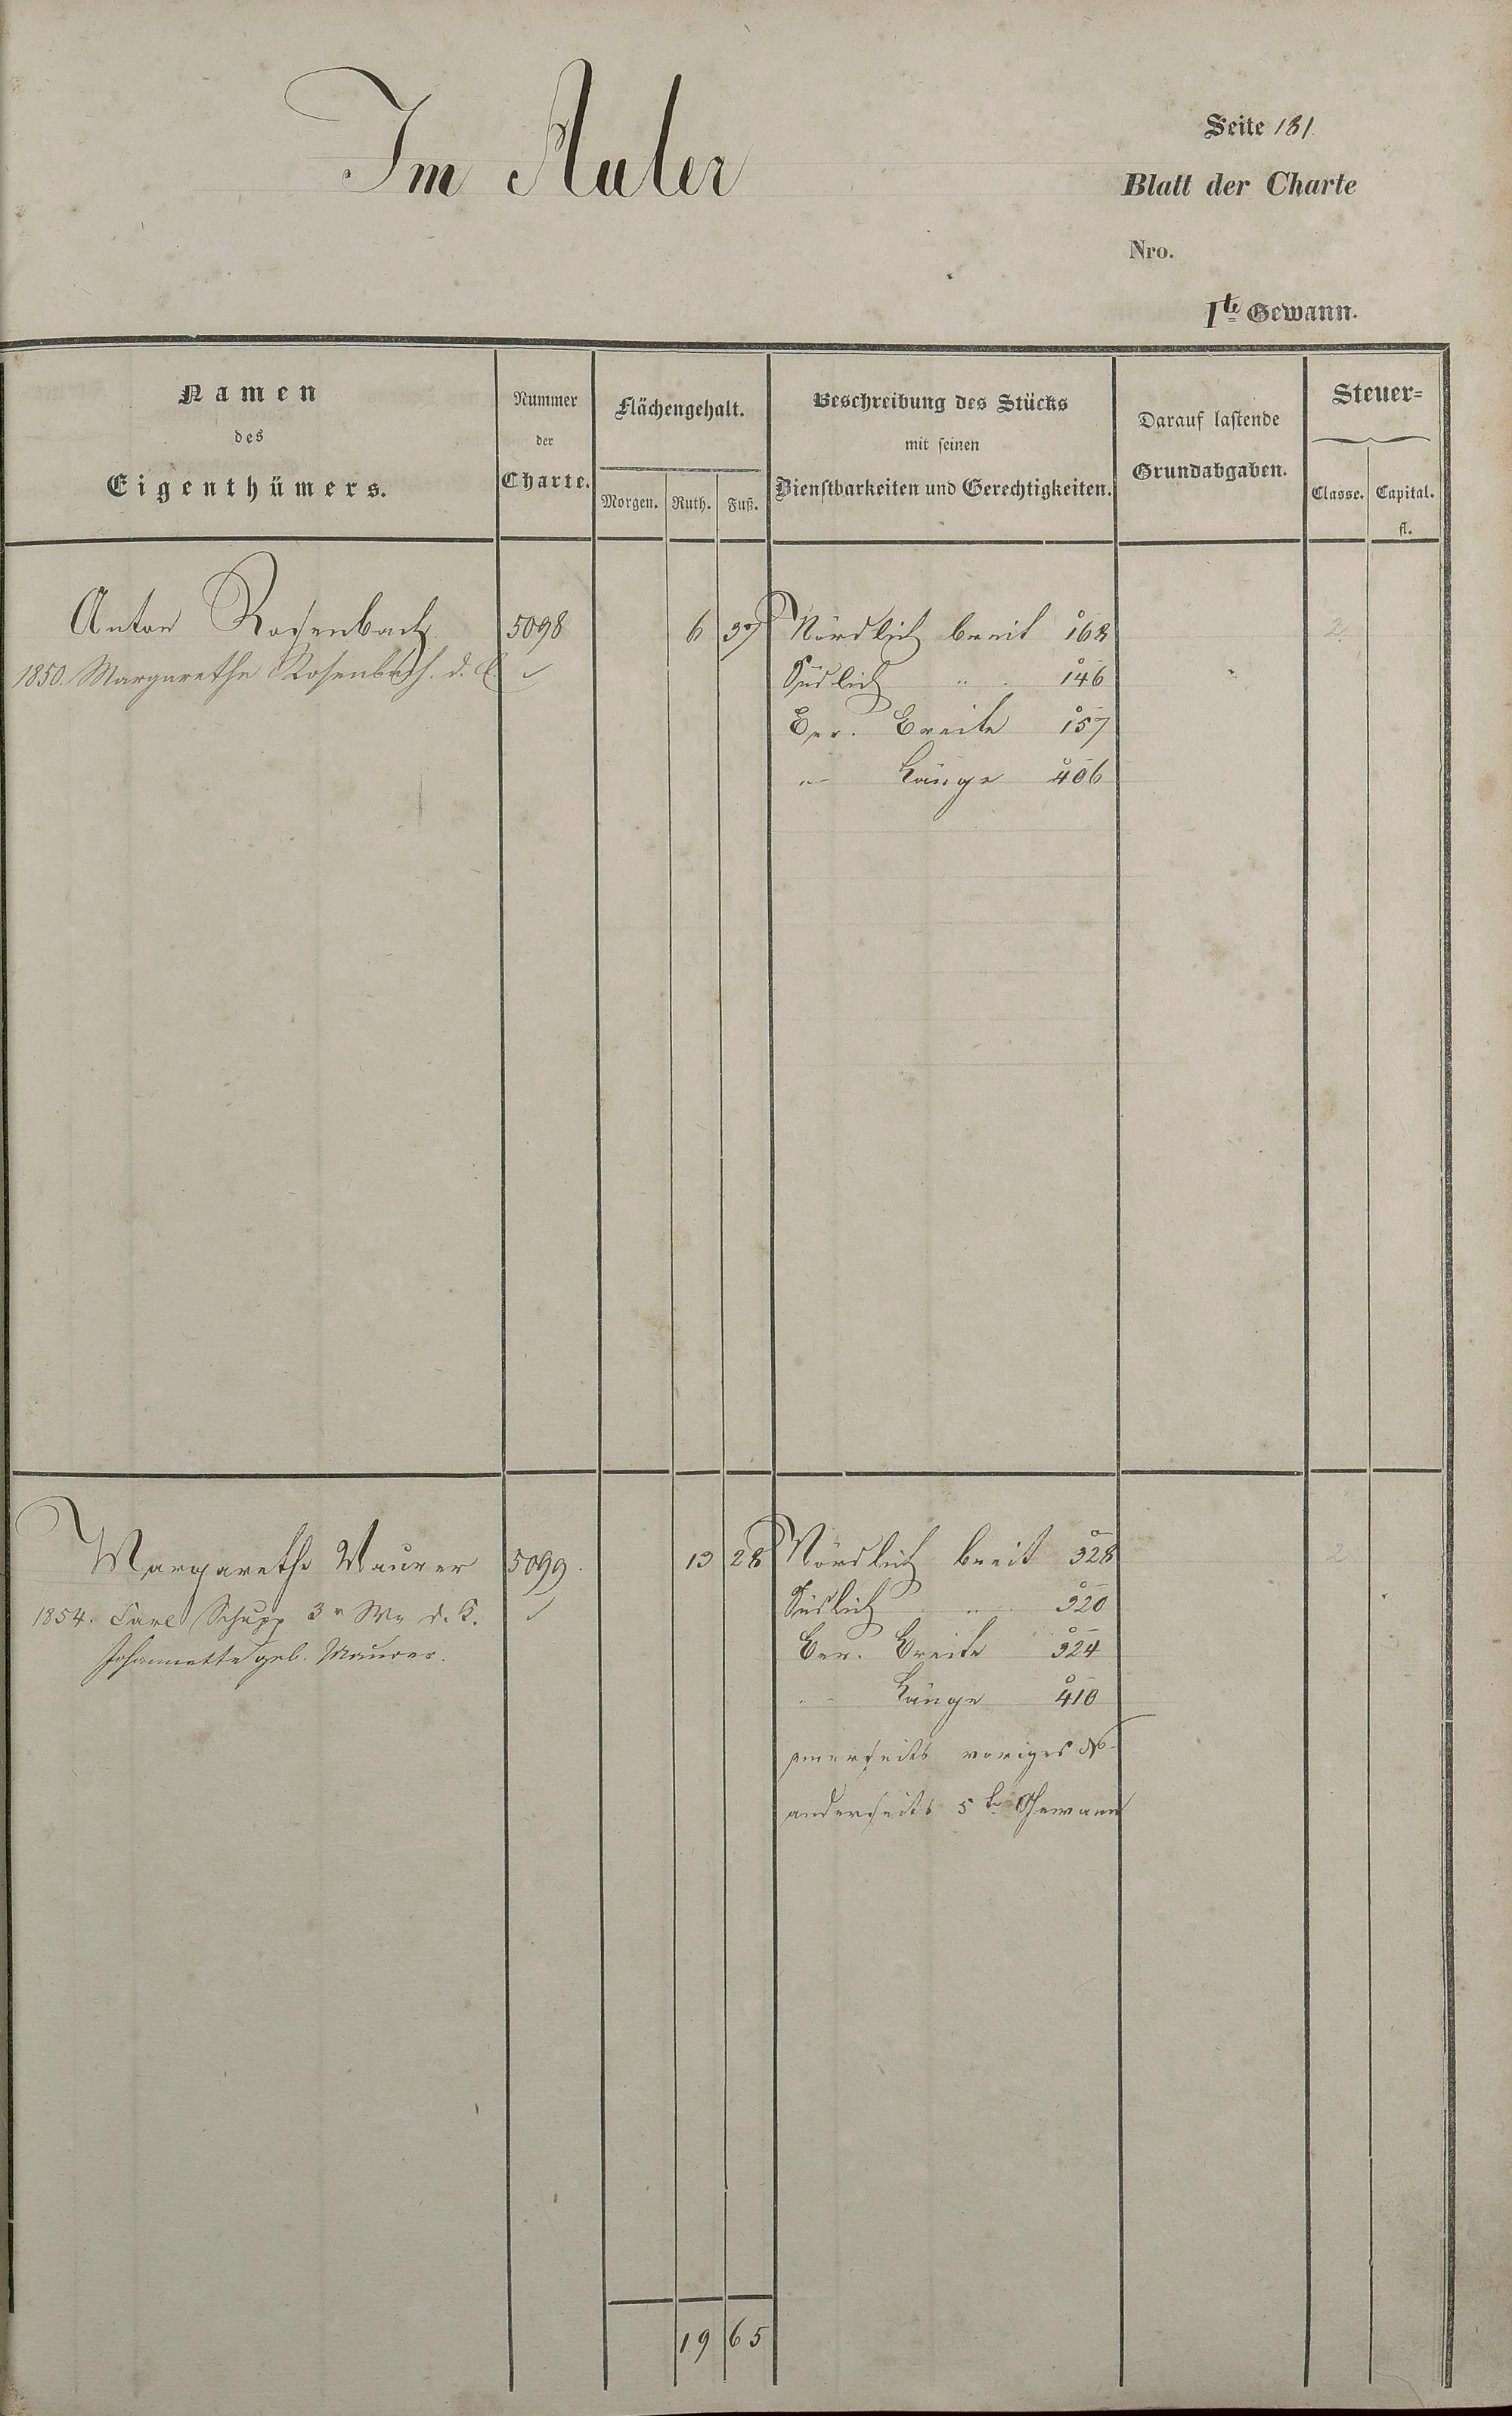 Im Auler
Seite 181.
Blatt der Charte
Nro.
1te Gewann.
Namen
des
Eigenthümers.
Nummer
der
Charte.
Flächengehalt.
Morgen. Ruth. Fuß.
Beschreibung des Stücks
mit seinen
Dienstbarkeiten und Gerechtigkeiten.
Darauf lastende
Grundabgaben.
Steuer=
Classe. Capital.
fl.
Anton Rosenbach 5098 6 37 Nördlich breit 168 2
1850. Margarethe Rosenbach. d. Südlich " 146
Ber. Breite 157
" Länge 406
Margarethe Maurer 5099. 13 28 Nördlich breit 328 2
1854. Carl Schupp 3r Wr d. K. Südlich " 320
Johannette geb. Maurer. Ber. Breite 324
" Länge 410
einerseits voriges No
anderseits 5te Gewann
19 65